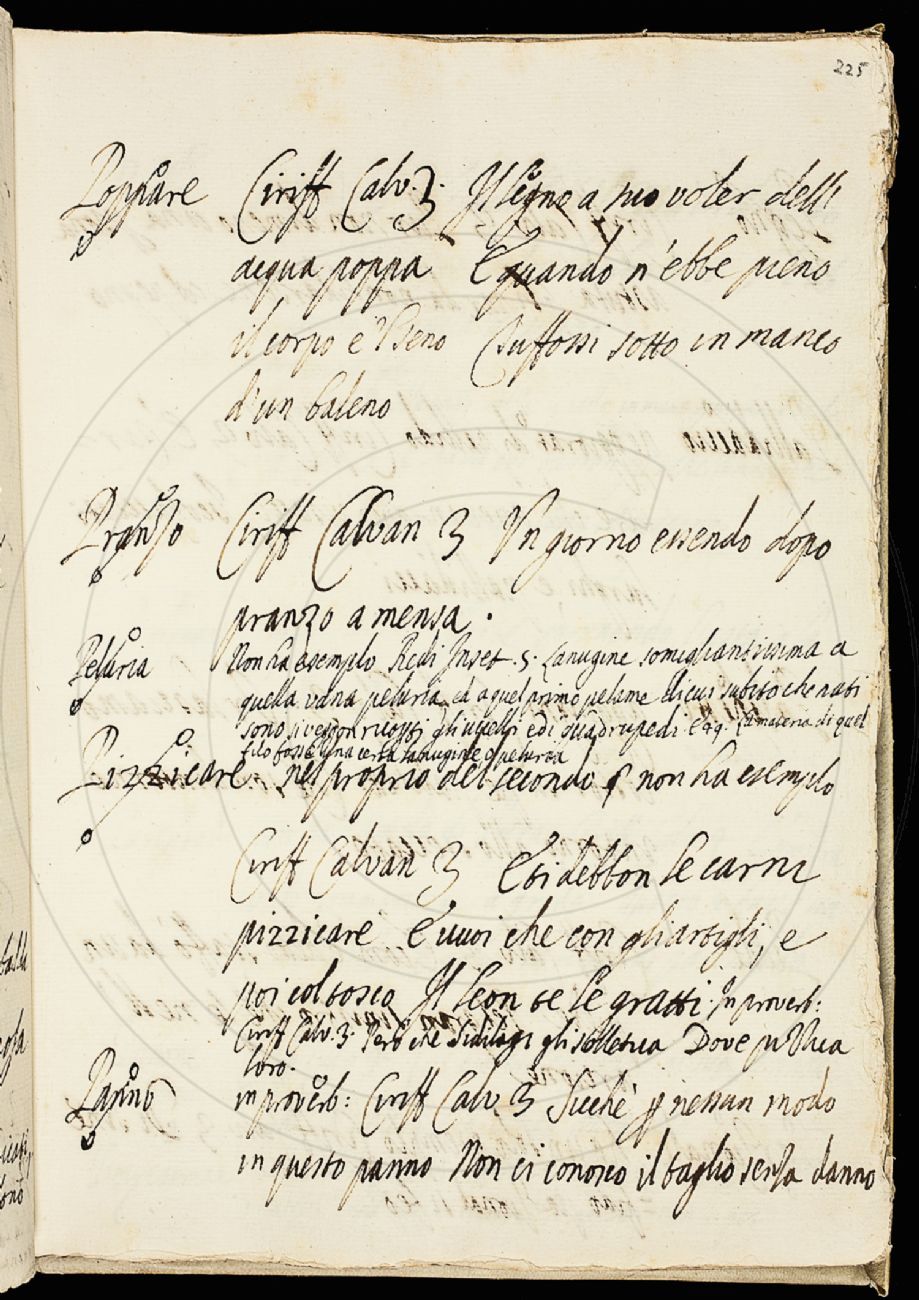 225
Poppare Ciriff Calv. 3. Il legno a suo voler dell'
acqua poppa E quando n'ebbe pieno
il corpo e 'l seno Tuffossi sotto in manco
d'un baleno
Pranzo Ciriff Calvan 3 Un giorno essendo dopo
pranzo a mensa.
Peluria Non ha esempio Redi Inset. 5. Lanugine somigliantissima a
quella vana peluria, ed a quel primo pelame di cui subito che nati
sono si veggon ricoperti gli uccelli ed i quadrupedi. E 99. La materia di quel
filo fosse una certa lanugine o peluria
Pizzicare nel proprio del secondo § non ha esempio
Ciriff Calvan 3 E ti debbon le carni
pizzicare E vuoi che con gli artigli, e
poi col tosco Il leon te le gratti. In proverb:
Ciriff Calv. 3. Però che gli solletica Dove pizzica
loro.
Panno in proverb: Ciriff Calv. 3 Sicchè p nessun modo
in questo panno Non ci conosco il taglio senza danno